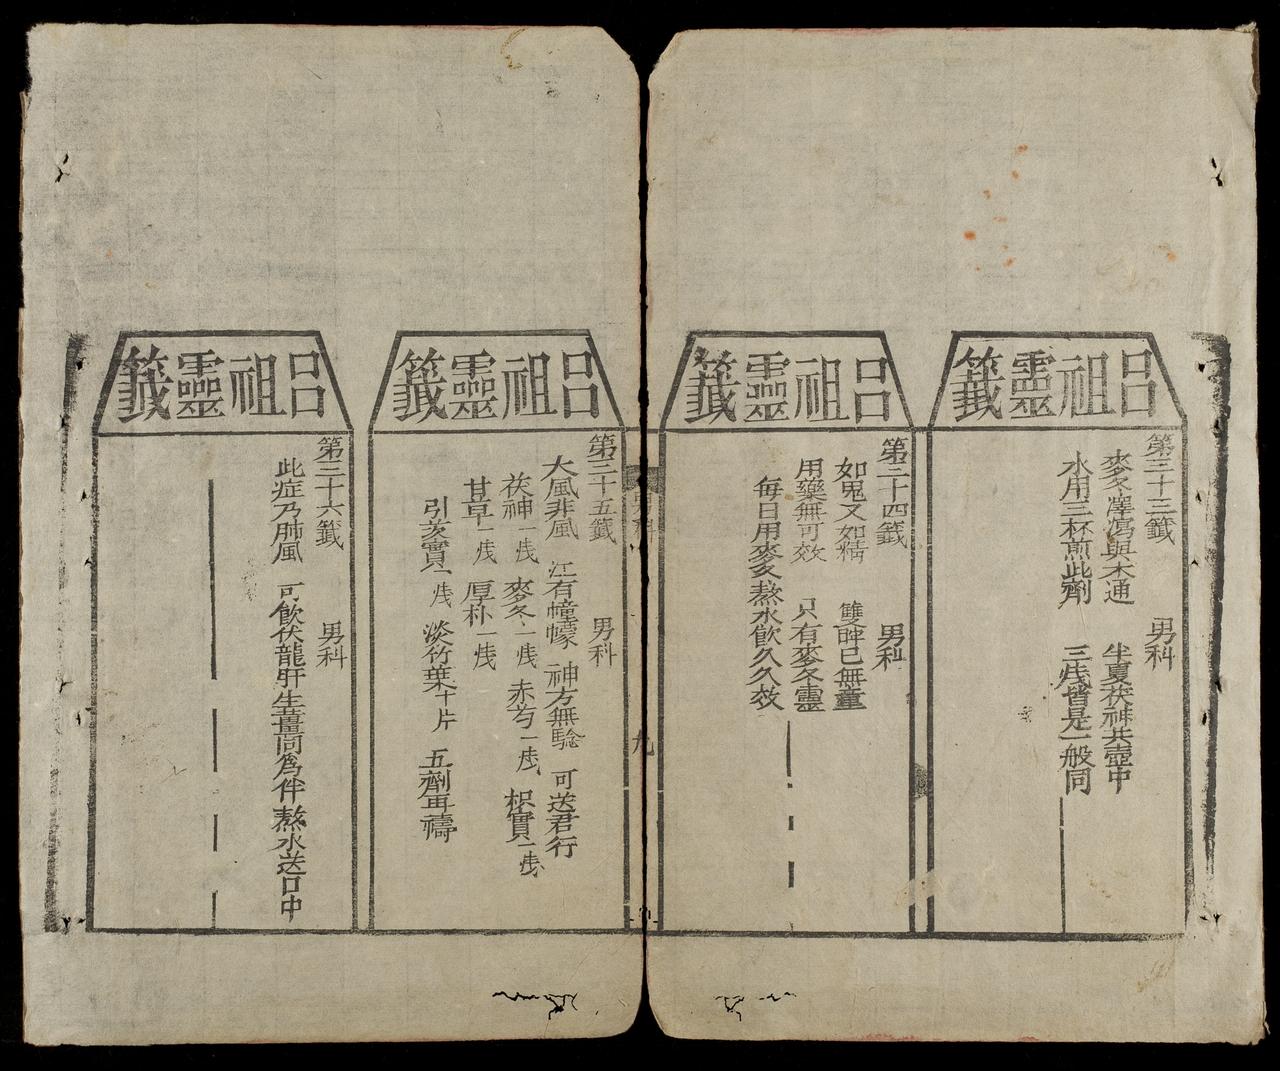 呂祖靈籤
第三十三籤 男科
麥冬澤瀉與木通 半夏茯神共壺中
水用三杯煎此劑 三戔皆是一般同
呂祖靈籤
第三十四籤 男科
如鬼又如精 雙睥已無童
用藥無可效 只有麥冬靈
每日用麥冬熬水飲久久效
男科
九
呂祖靈籤
第三十五籤 男科
大風非風 江有幢幪 神方無騐 可送君行
茯神一戔 麥冬一戔 赤芍一戔 枳實一戔
甘草一戔 厚朴一戔
引芡實一戔 淡竹葉十片 五劑再禱
呂祖靈籤
第三十六籤 男科
此症乃肺風 可飲伏龍肝 生薑同為伴 熬水送口中